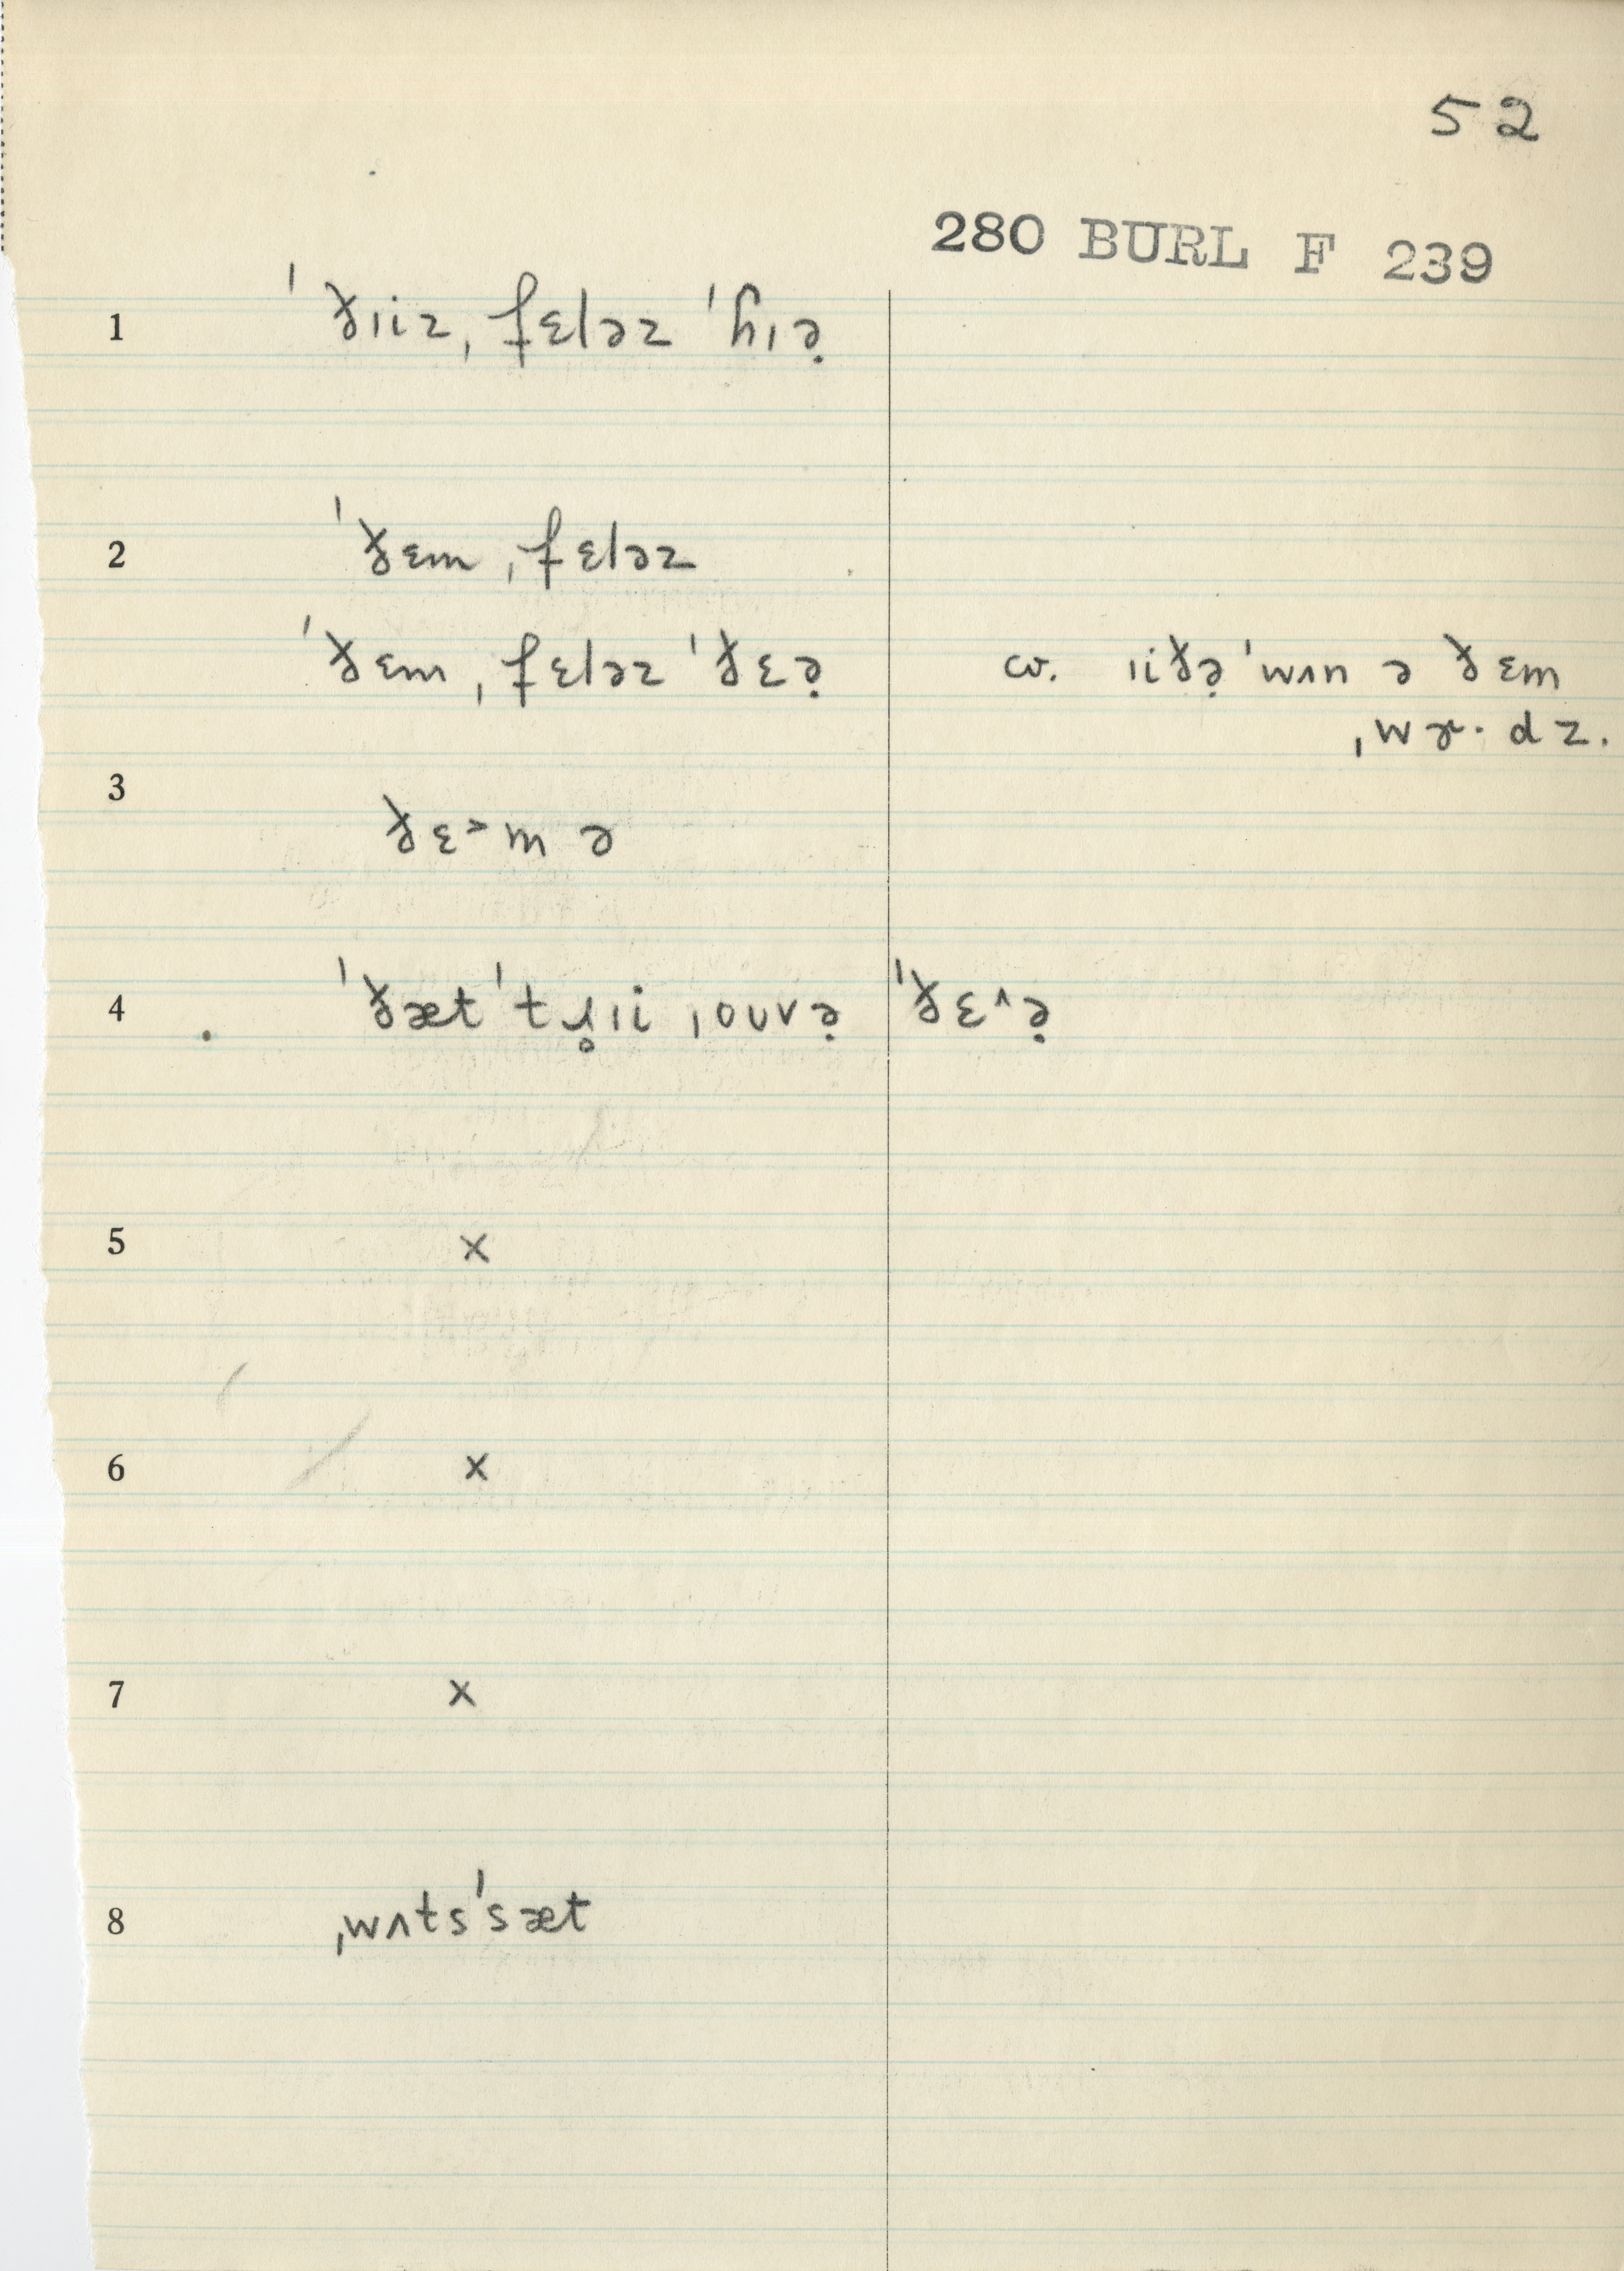 52
280 BURL F 239
1 ˈðɪiz ˌfɛləz ˈɦɪə̣
2 ˈðɛm ˌfɛləz
ˈðɛm ˌfɛləz ˈðɛə̣ cv. ɪiðə̣ ˈwʌn ə ðɛm
ˌwɚ· dz.
3 ðɛ˃m ə
4 ˈðæt ˈtɹ̥ɪi ˌoʊvə̣ ˈðɛ˄ə̣
5 x
6 x
7 x
8 ˌwʌtsˈsæt